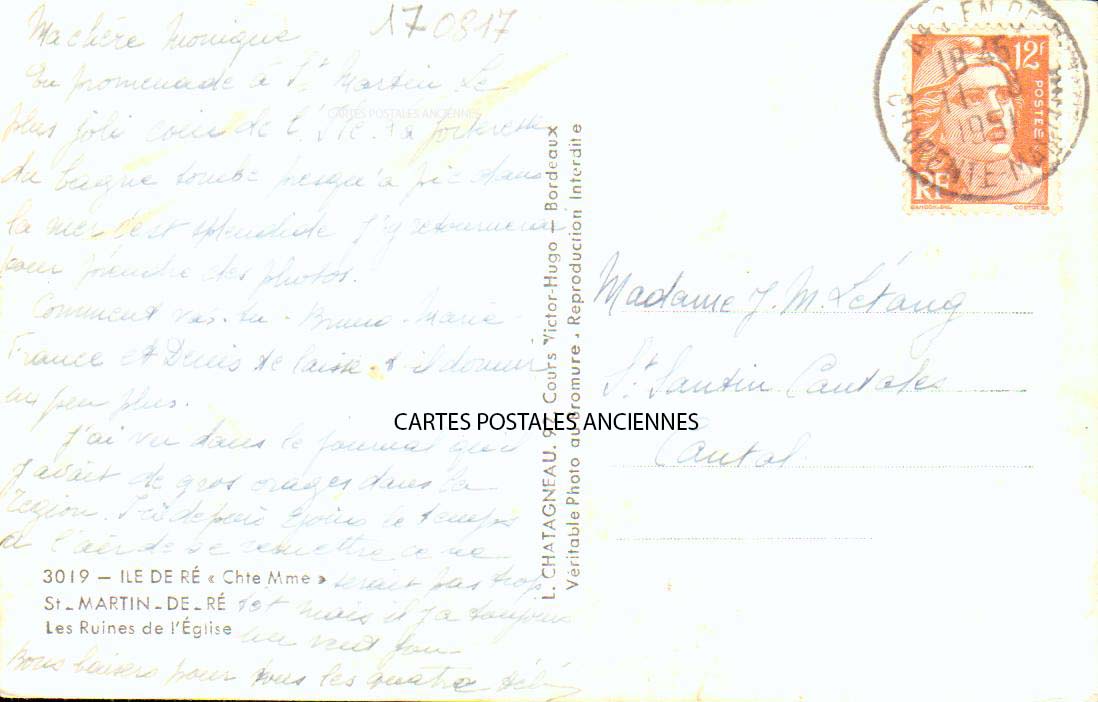 Ma chère Monique
170817
En promenade à St Martin Le
plus joli coin de l'Ile. La forteresse
du bagne tombe presqu'à pic dans
la mer c'est splendide J'y retournerai
pour prendre des photos.
Comment vas-tu - Bruno - Marie-
France et Denis te laisse-t-il dormir
un peu plus.
J'ai vu dans le journal qu'il
y avait de gros orages dans la
région. Ici depuis le temps
a l'air de se remettre, ce ne
serait pas trop
tôt mais il y a toujours
un vent fou
Bons baisers pour vous les quatre
3019 — ILE DE RÉ « Chte Mme »
St_MARTIN_DE_RÉ
Les Ruines de l'Église
CARTES POSTALES ANCIENNES
CARTES POSTALES ANCIENNES
L. CHATAGNEAU. Cours Victor-Hugo — Bordeaux
Véritable Photo au Bromure . Reproduction Interdite
EN
CHARENTE-
18 45
11 - 8
1951
12f
POSTES
RF
Madame J. M. Létang
St Santin Cantalès
Cantal